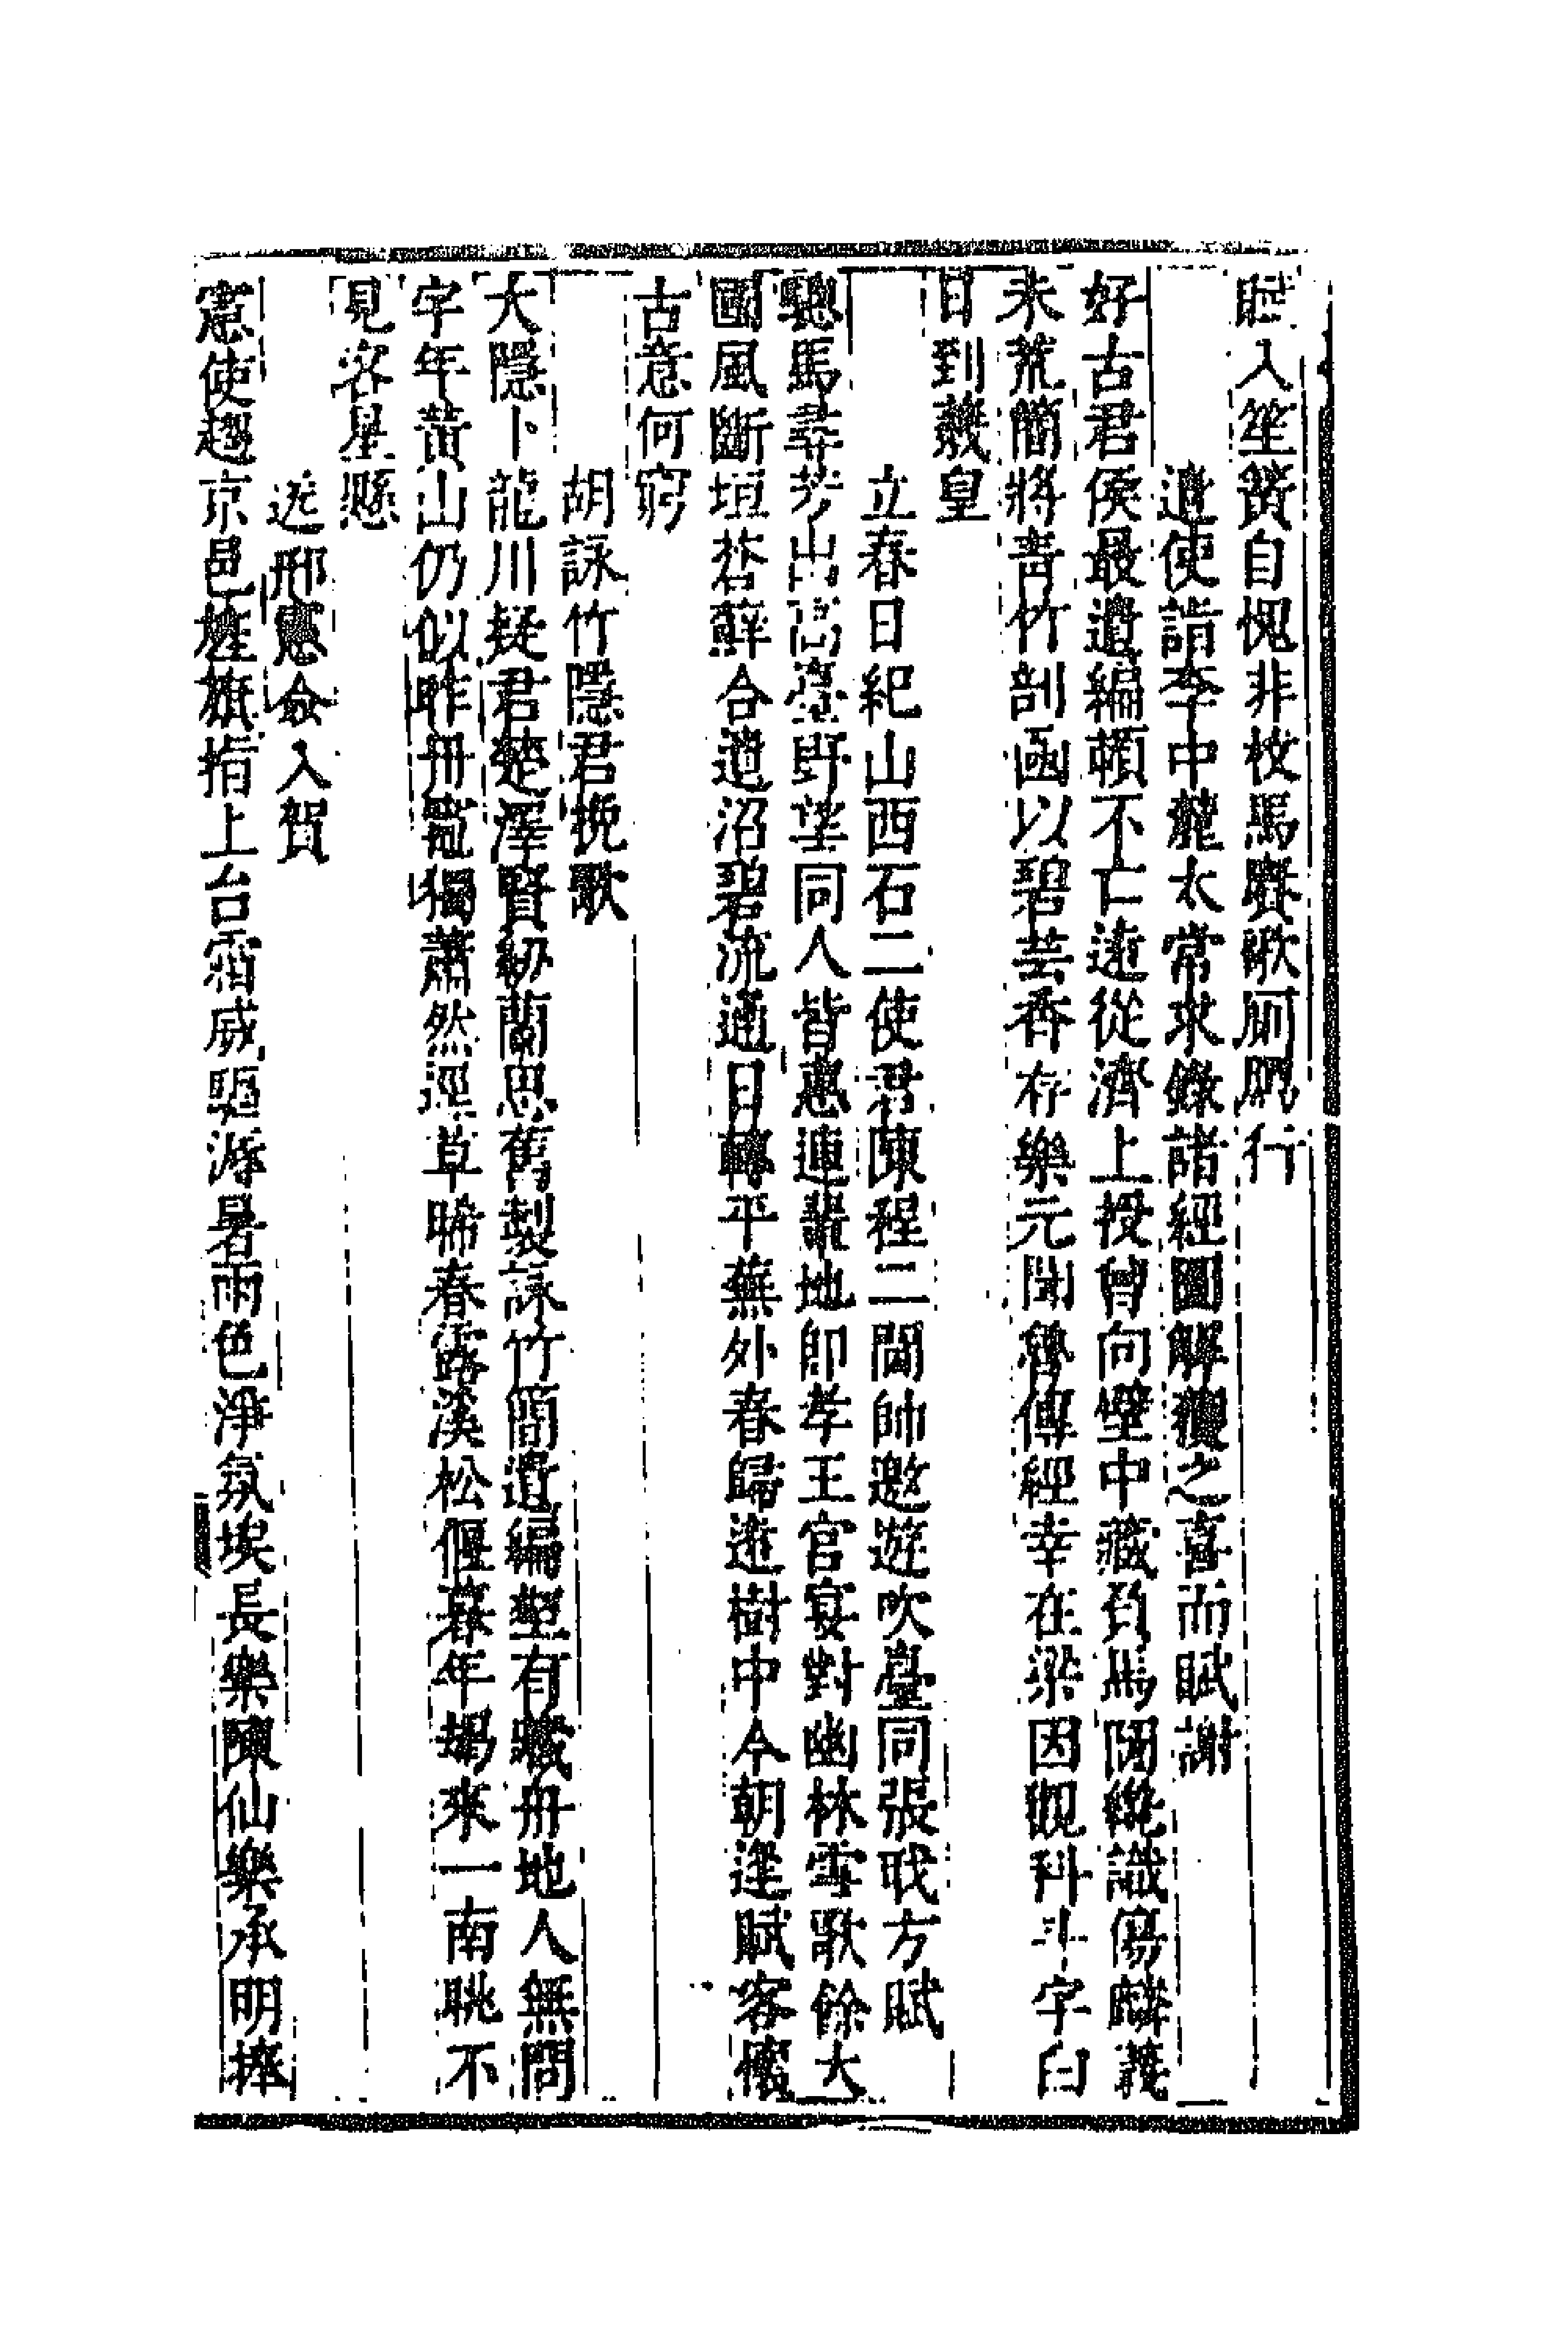 賦入笙簧自愧非枚馬賡歌廁鴈行
遣使詣李中麓太常求錄諸經圖解獲之喜而賦謝
好古君侯最遺編賴不亡遠從濟上授曾向壁中藏負馬開織識傷麟義
未荒簡將青竹剖函以碧芸香存樂元聞魯傳經幸在梁因觀科斗字白
日到羲皇
立春日紀山西石二使君陳程二閫帥邀遊吹臺同張戢方賦
驄馬尋芳出高臺野望同人皆惠連輩地即孝王官宴對幽林雪歌餘大
國風斷垣苔蘚合遺沼碧流通日轉平蕪外春歸遠樹中今朝逢賦客懷
古意何窮
胡詠竹隱君挽歌
大隱卜龍川疑君楚澤賢紉蘭思舊製詠竹簡遺編壑有藏舟地人無問
字年黃山仍似昨丹竈獨蕭然逕草晞春露溪松偃暮年朅來一南眺不
見客星懸
送邢憲僉入賀
憲使趨京邑旌旗指上台霜威驅溽暑雨色淨氛埃長樂陳仙樂承明捧